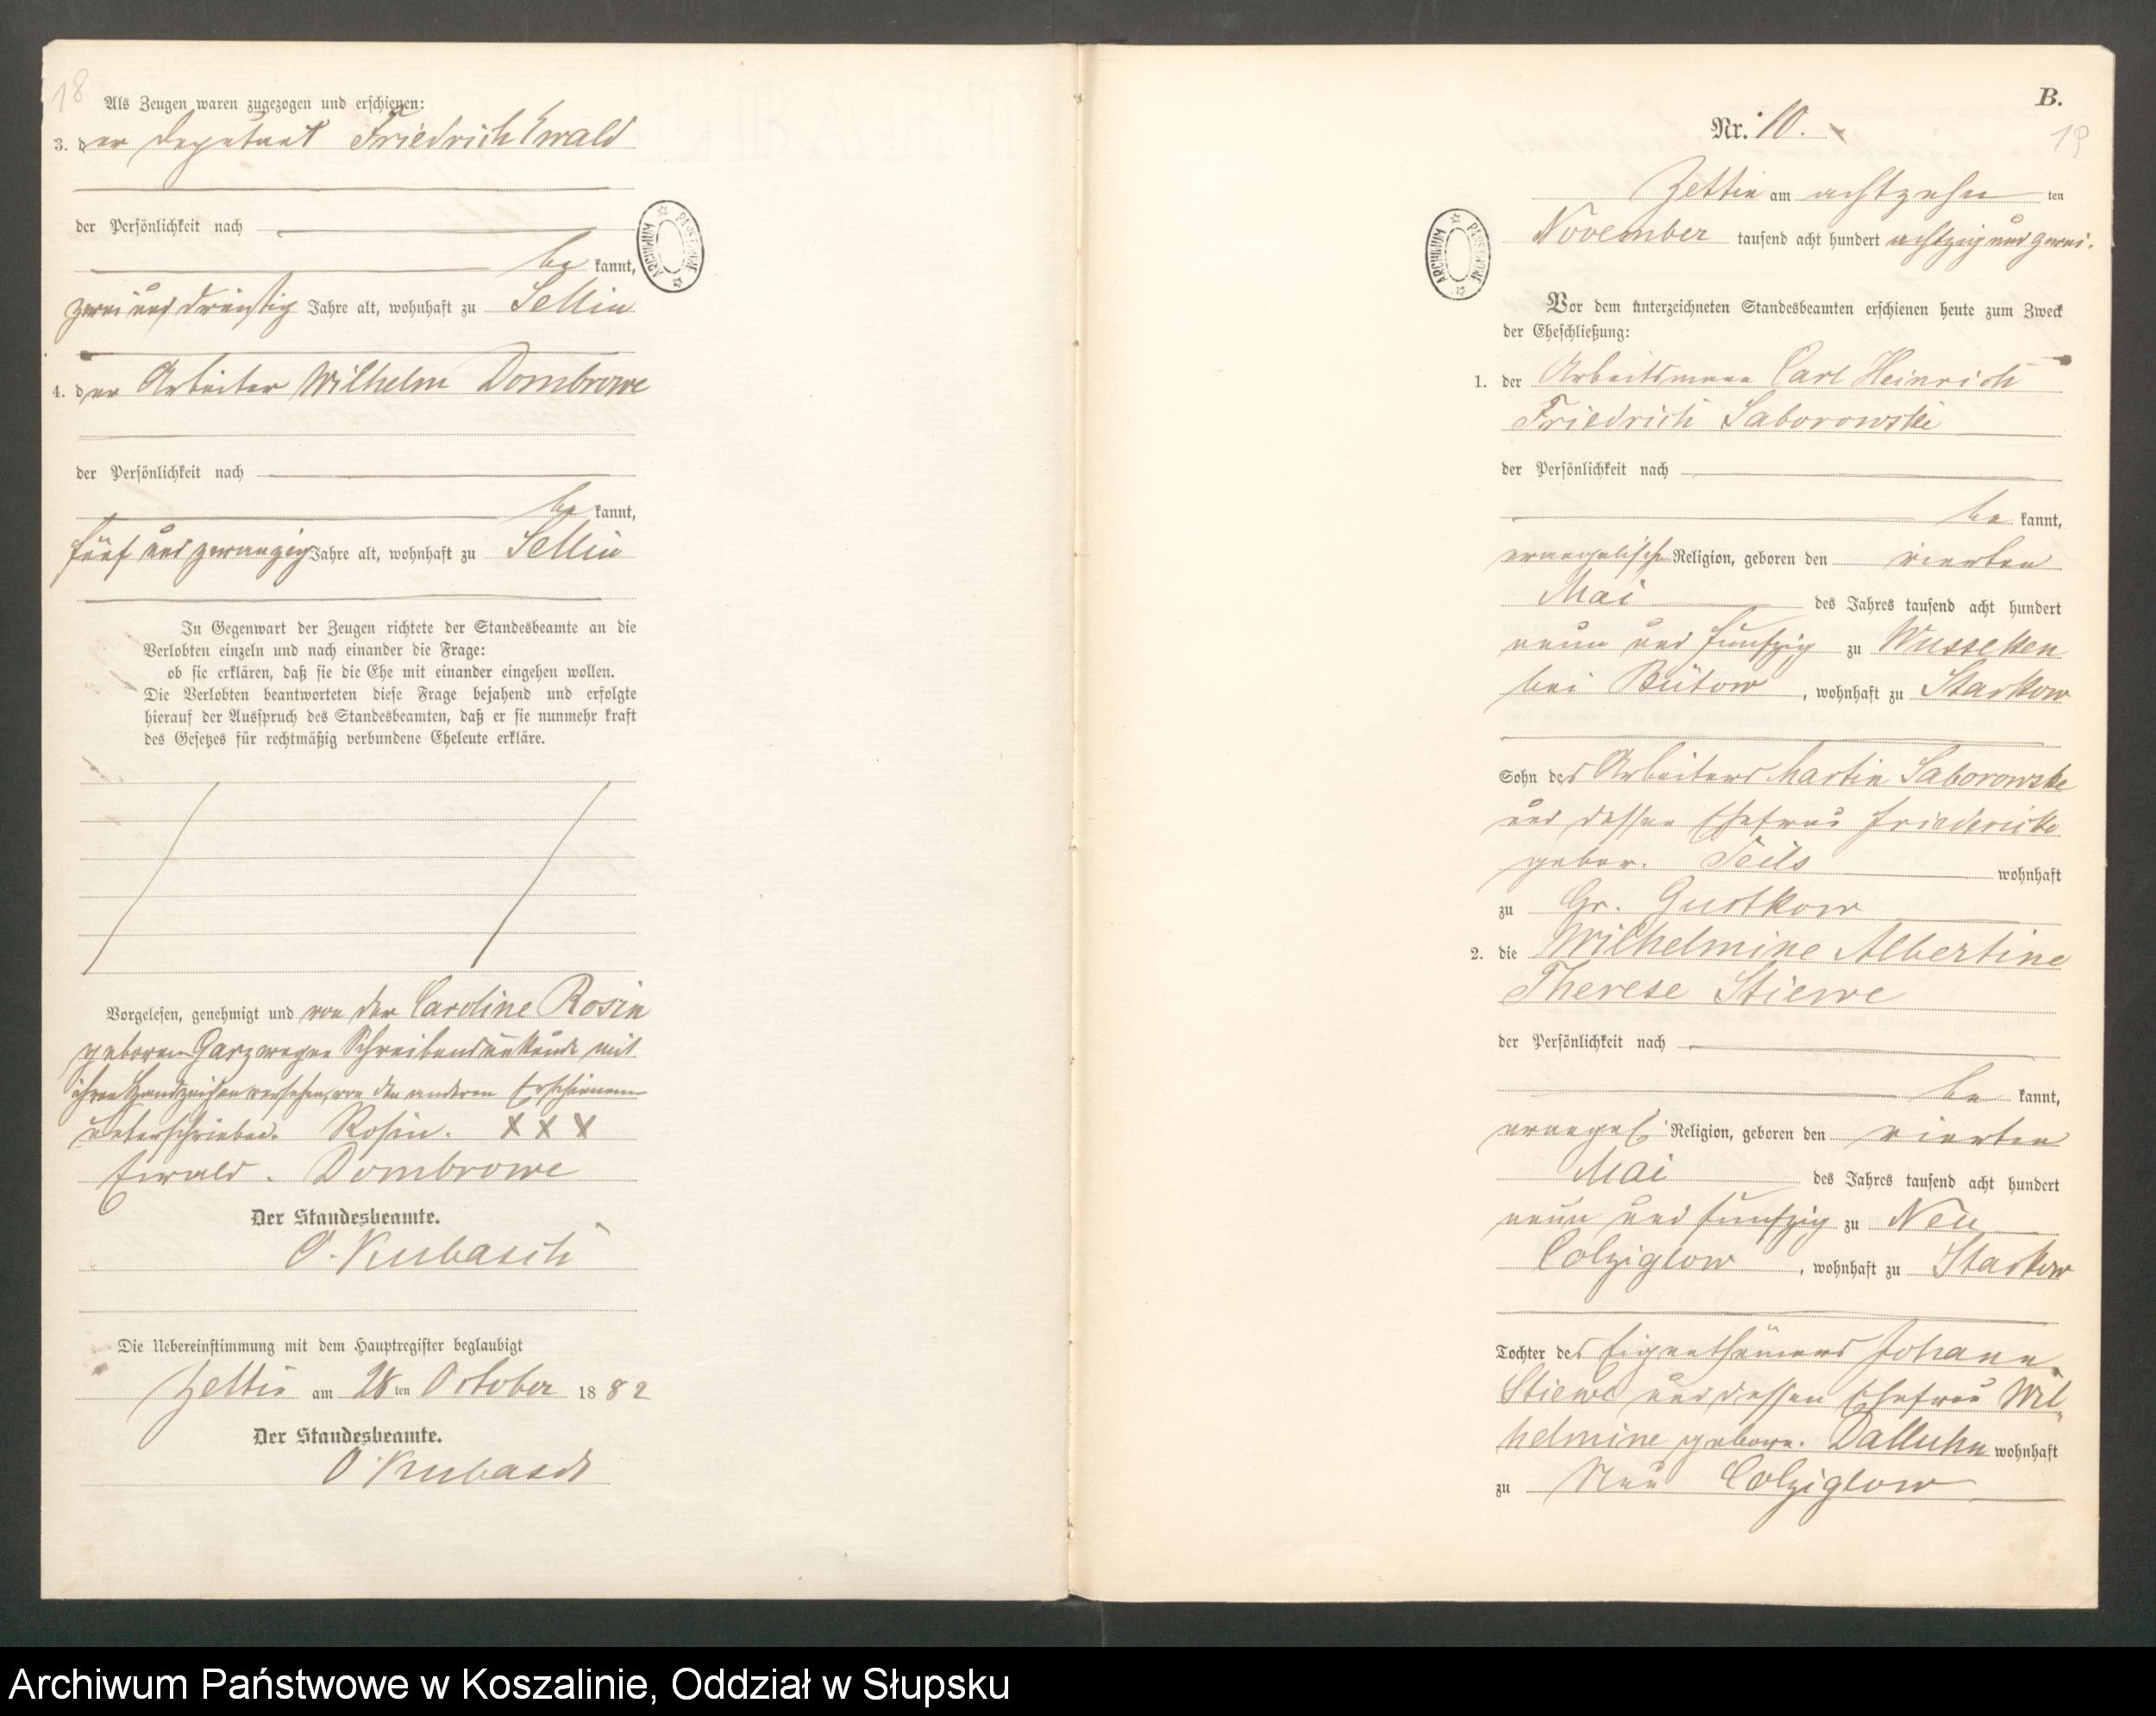 18
Als Zeugen waren zugezogen und erschienen:
3. der Deputant Friedrich Ewald
der Persönlichkeit nach
be kannt,
zwei und dreißig Jahre alt, wohnhaft zu Sellin
4. der Arbeiter Wilhelm Dombrowe
der Persönlichkeit nach
be kannt,
fünf und zwanzig Jahre alt, wohnhaft zu Sellin
In Gegenwart der Zeugen richtete der Standesbeamte an die
Verlobten einzeln und nach einander die Frage:
ob sie erklären, daß sie die Ehe mit einander eingehen wollen.
Die Verlobten beantworteten diese Frage bejahend und erfolgte
hierauf der Ausspruch des Standesbeamten, daß er sie nunmehr kraft
des Gesetzes für rechtmäßig verbundene Eheleute erkläre.
Vorgelesen, genehmigt und von der Caroline Rosin
geboren Garz wegen Schreibensunkunde mit
ihren Handzeichen versehen, von den anderen Erschienenen
unterschrieben. Rosin. X X X
Ewald. Dombrowe
Der Standesbeamte.
O. Kubasch
Die Uebereinstimmung mit dem Hauptregister beglaubigt
Zettin am 28 ten October 18 82
Der Standesbeamte.
O. Kubasch
ARCHIWUM PAŃSTWOWE
B.
Nr. 10.
19
Zettin am achtzehn ten
November tausend acht hundert achtzig und zwei.
ARCHIWUM PAŃSTWOWE
Vor dem unterzeichneten Standesbeamten erschienen heute zum Zweck
der Eheschließung:
1. der Arbeitsmann Carl Heinrich
Friedrich Saborowski
der Persönlichkeit nach
be kannt,
evangelischer Religion, geboren den vierten
Mai des Jahres tausend acht hundert
neun und fünfzig zu Wusseken
bei Bütow, wohnhaft zu Starkow
Sohn des Arbeiters Martin Saborowske
und dessen Ehefrau Friedericke
gebor. Teils wohnhaft
zu Gr. Gustkow
2. die Wilhelmine Albertine
Therese Stiewe
der Persönlichkeit nach
be kannt,
evangel. Religion, geboren den vierten
Mai des Jahres tausend acht hundert
neun und fünfzig zu Neu
Colziglow, wohnhaft zu Starkow
Tochter des Eigenthümers Johann
Stiewe und dessen Ehefrau Wil-
helmine geborn. Dalluhn wohnhaft
zu Neu Colziglow
Archiwum Państwowe w Koszalinie, Oddział w Słupsku